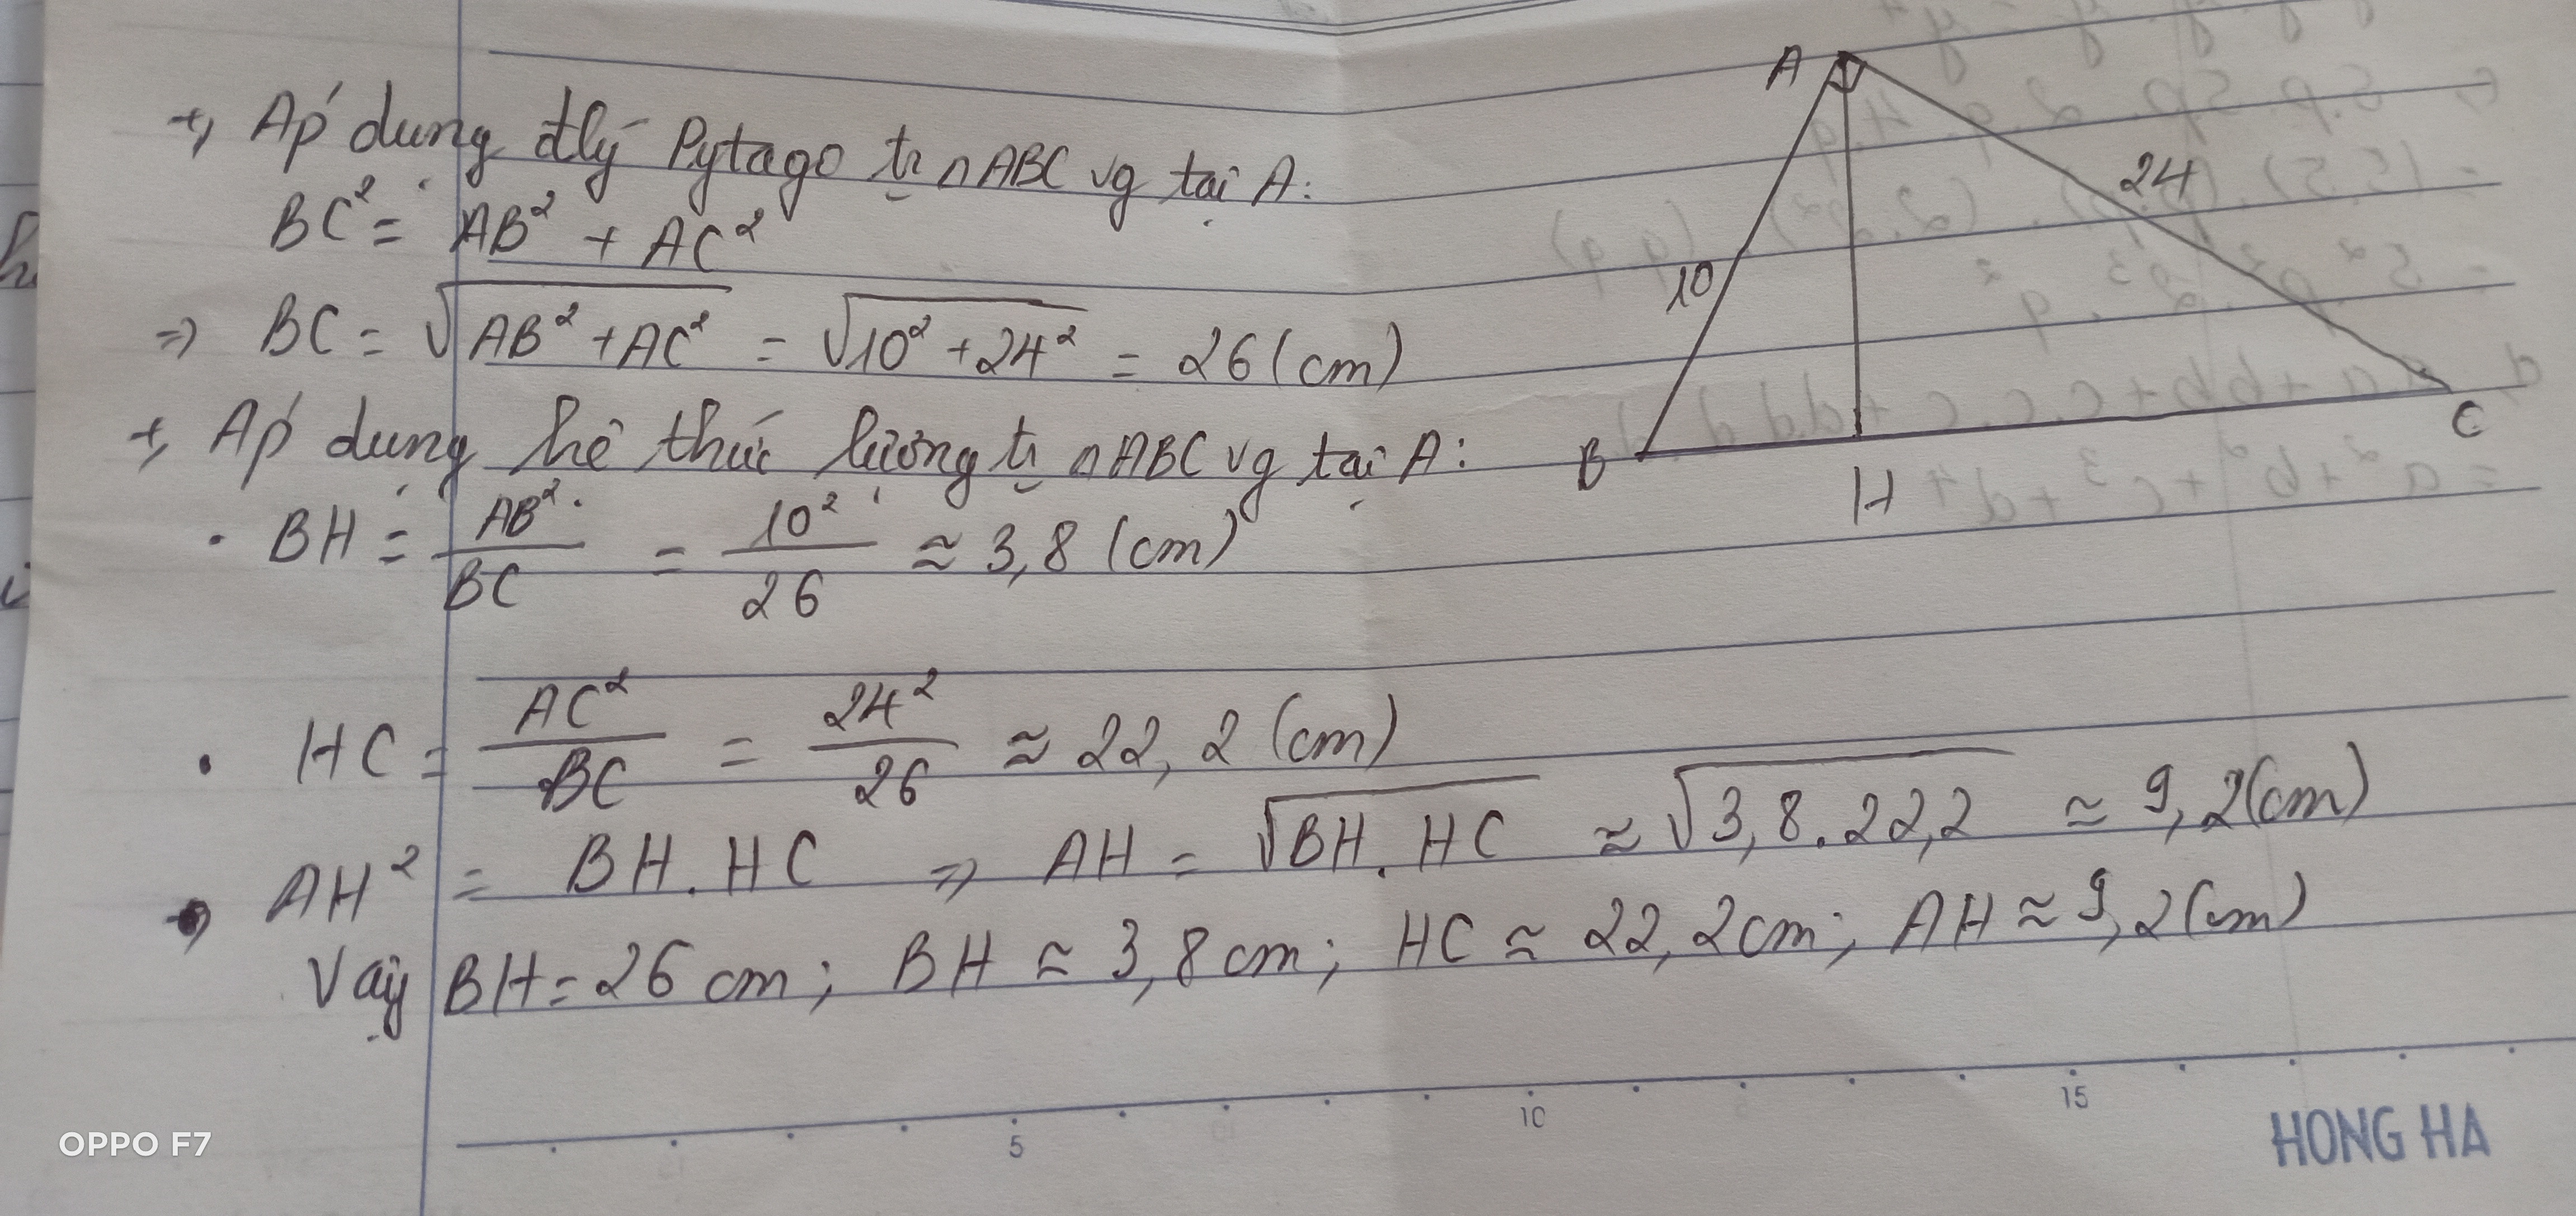 +, Áp dụng đlý Pytago tr̃ △ABC vg tại A:
BC² = AB² + AC²
=> BC = √AB² + AC² = √10² + 24² = 26 (cm)
+, Áp dụng hệ thức lượng tr̃ △ABC vg tại A:
• BH = AB²/BC = 10²/26 ≈ 3,8 (cm)
• HC = AC²/BC = 24²/26 ≈ 22,2 (cm)
AH² = BH.HC => AH = √BH.HC ≈ √3,8.22,2 ≈ 9,2(cm)
Vậy BH = 26 cm; BH ≈ 3,8 cm; HC ≈ 22,2cm; AH ≈ 9,2(cm)
A
24
10
B
H
C
5
10
15
HONG HA
OPPO F7